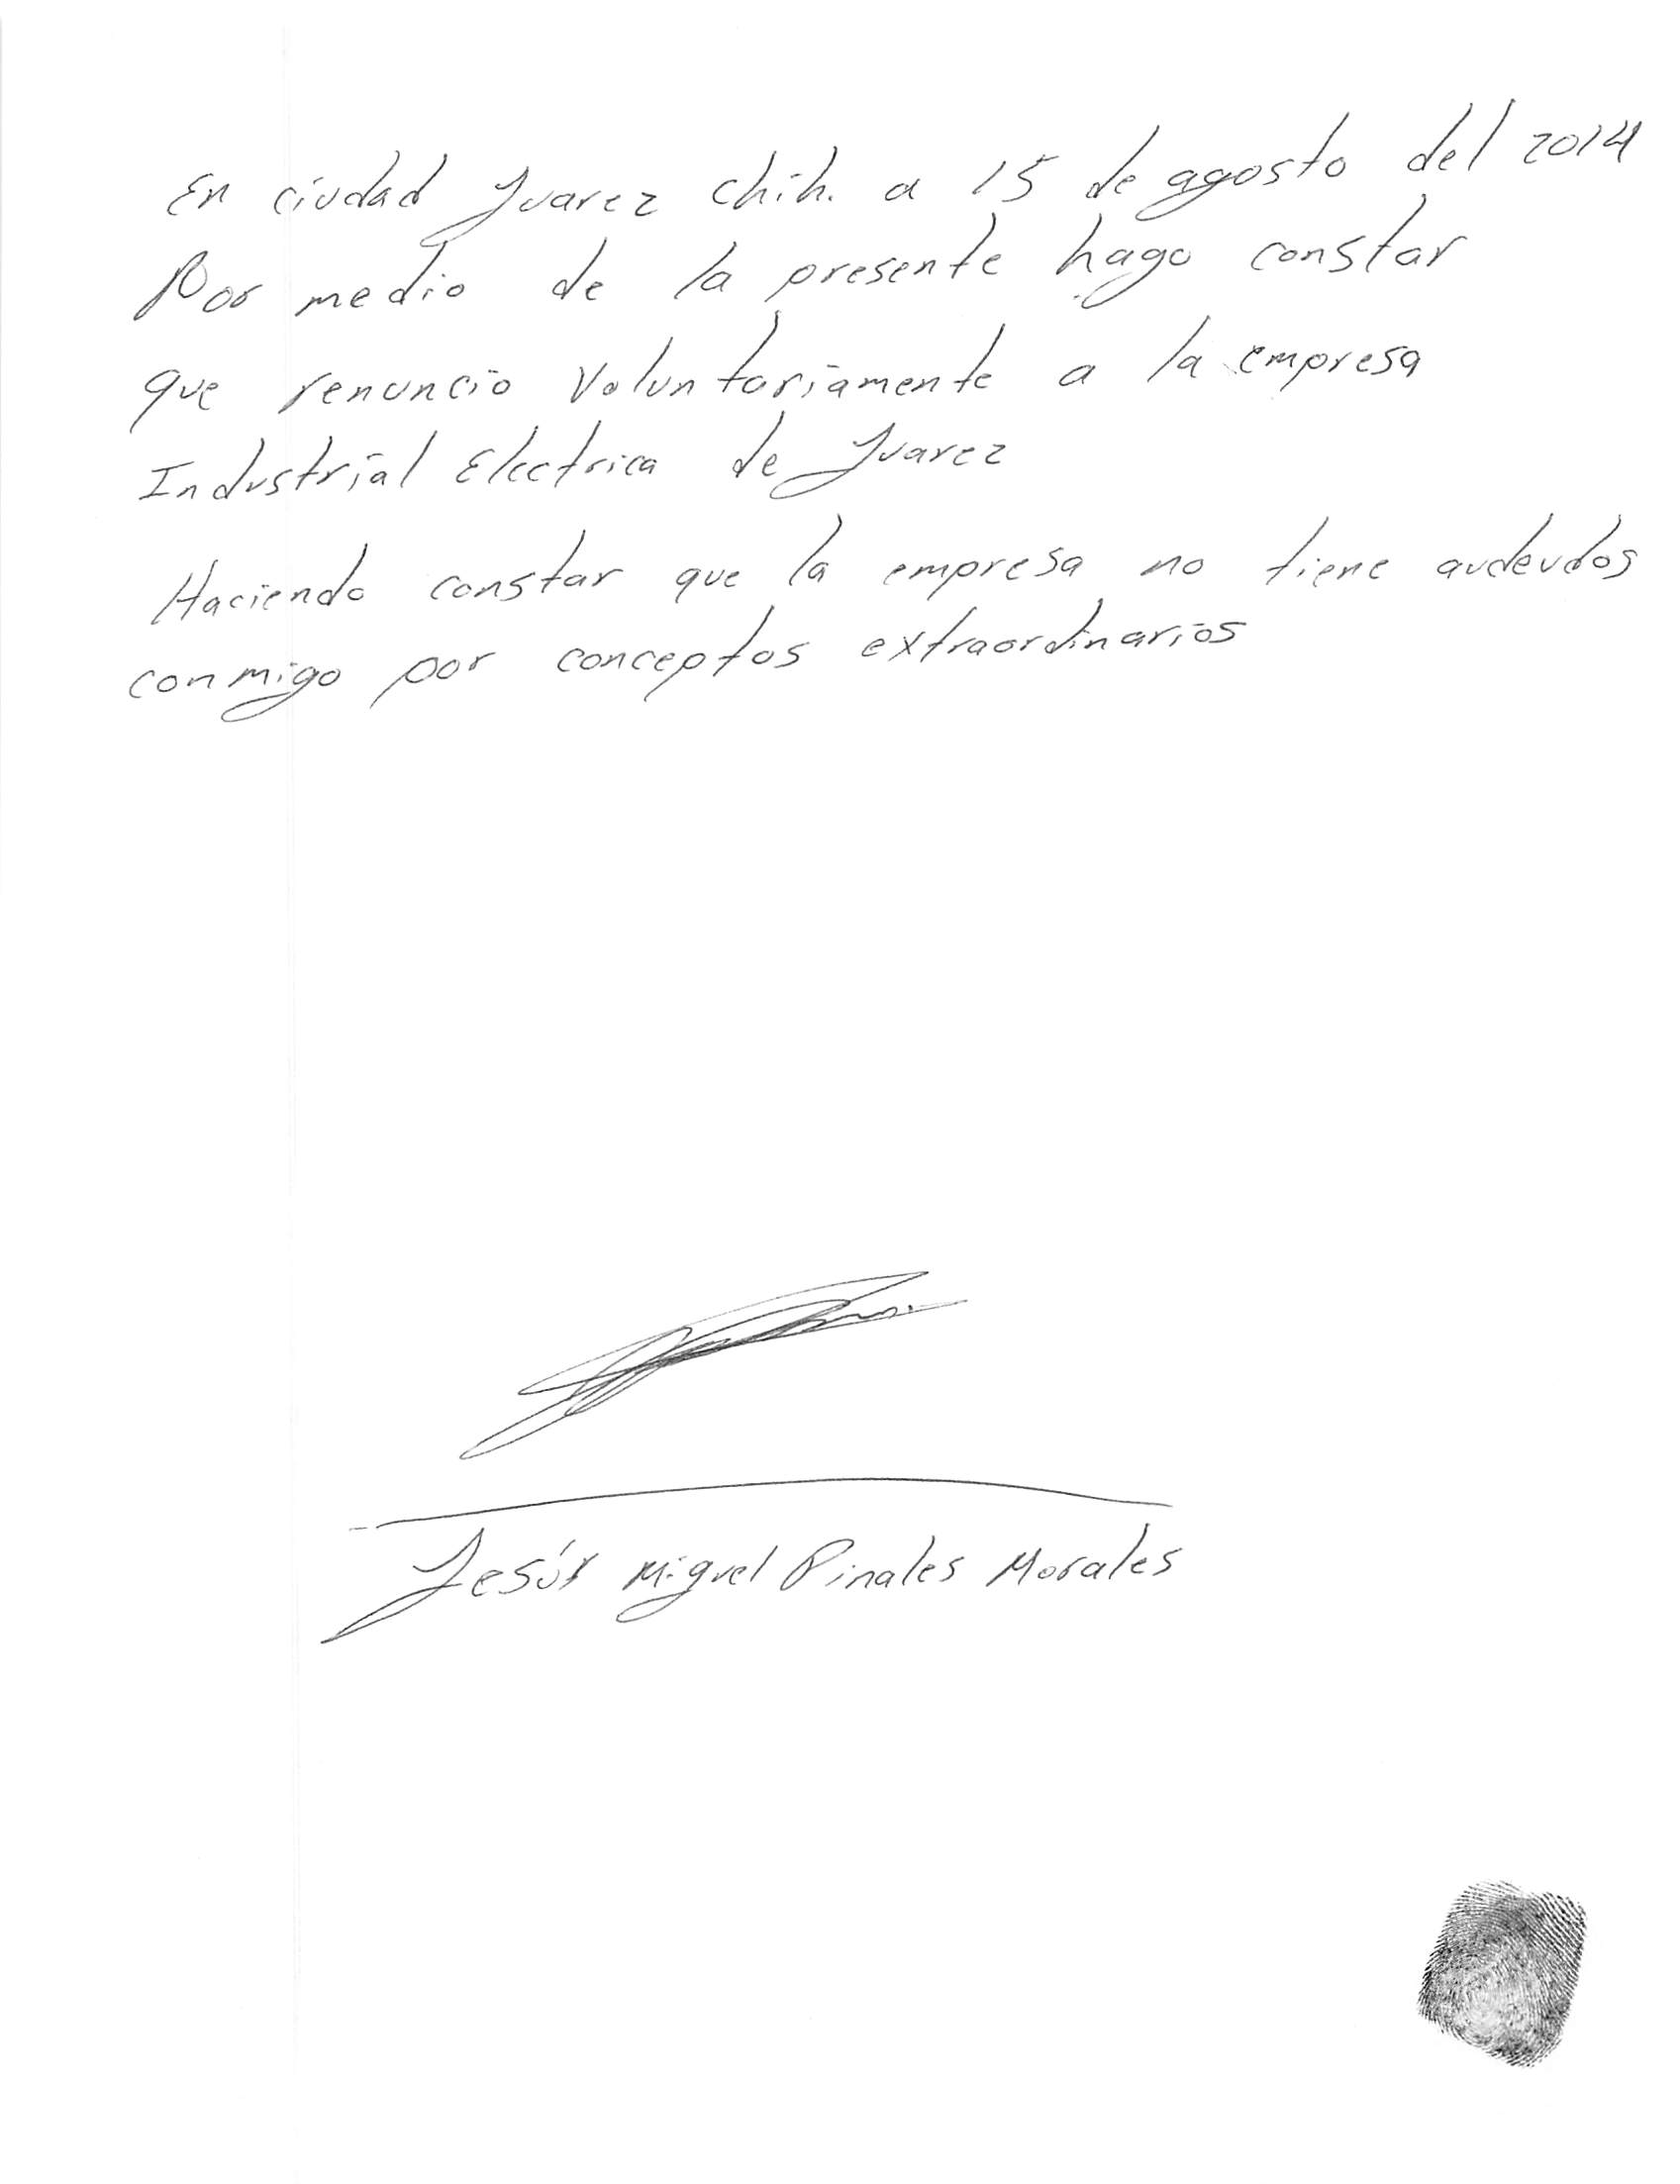 En ciudad Juarez chih. a 15 de agosto del 2014
Por medio de la presente hago constar
que renuncio Voluntariamente a la empresa
Industrial Electrica de Juarez
Haciendo constar que la empresa no tiene audeudos
conmigo por conceptos extraordinarios
Jesús Miguel Pinales Morales